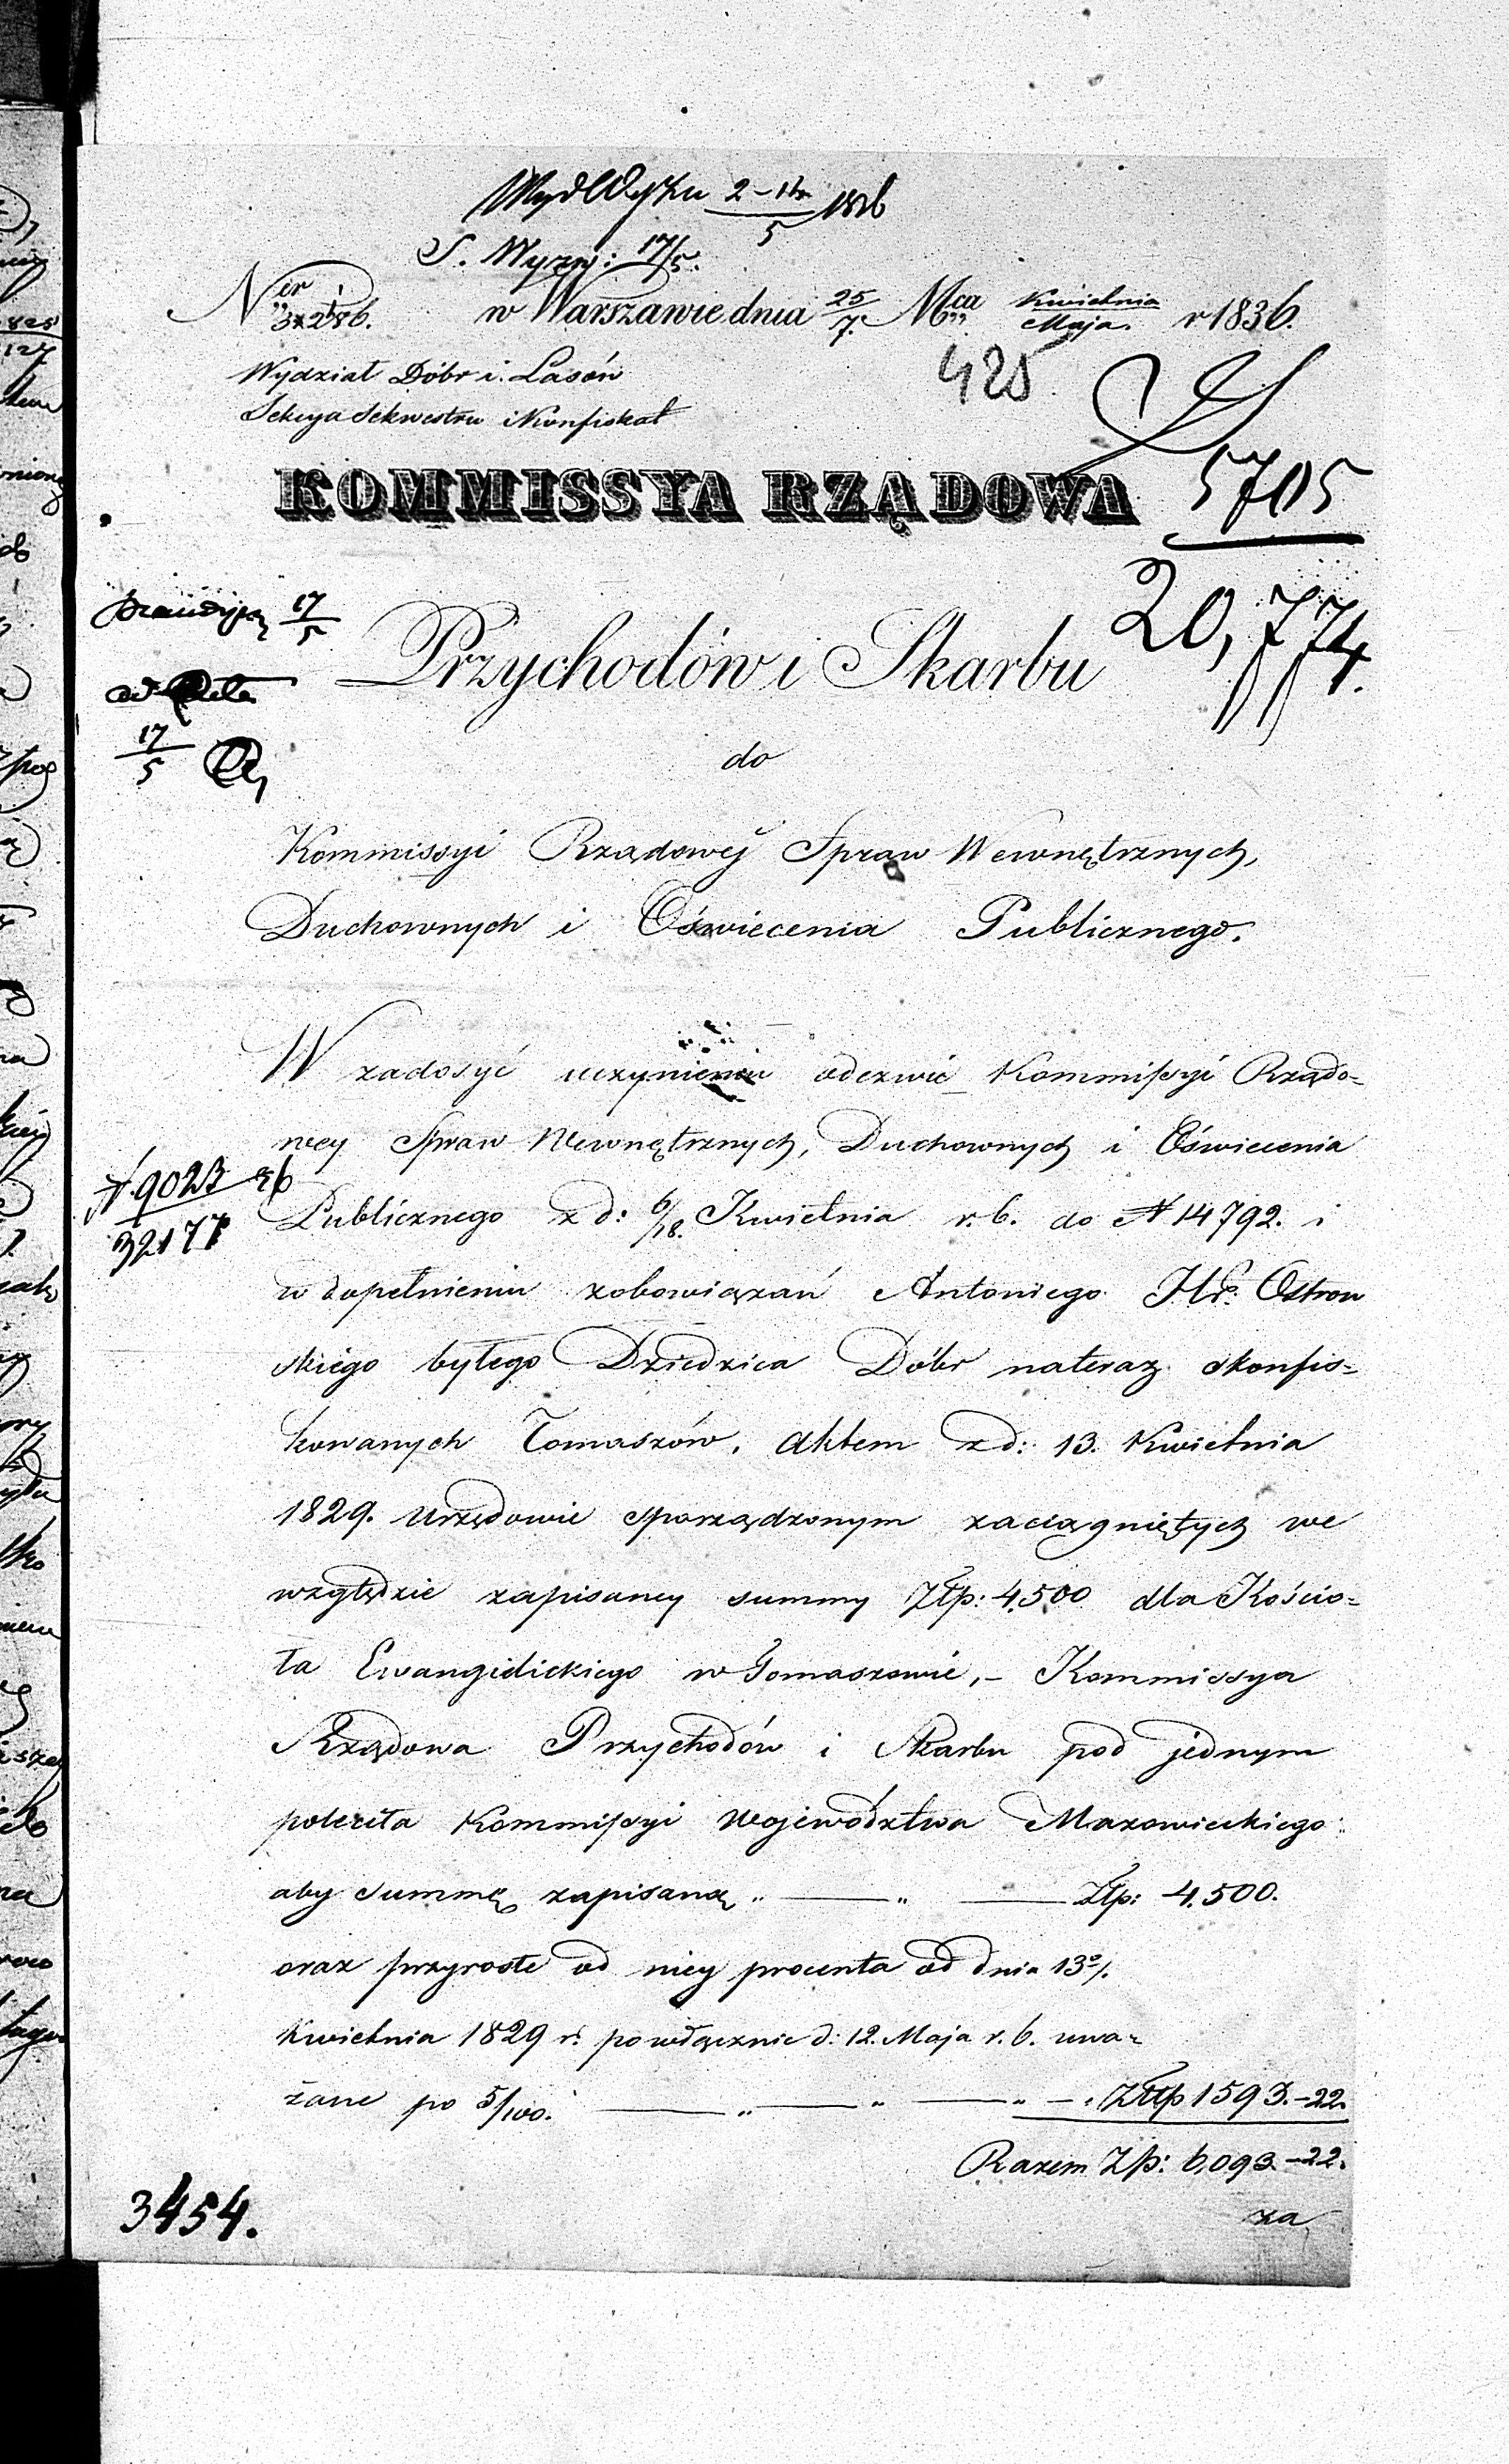 S. Wyzn: 17/5.
Ner w Warszawie dnia 25/7. Mca Kwietnia/Maja. r 1836.
Wydział Dóbr i Lasów
425
Sekcya Sekwestru i Konfiskat
KOMMISSYA RZĄDOWA
5705
20,774.
17/5
Przychodów i Skarbu
17/5
do
Kommissyi Rządowéj Spraw Wewnętrznych,
Duchownych i Oświecenia Publicznego.
W zadosyć uczynieniu odezwie Kommissyi Rządo=
wey Spraw Wewnętrznych, Duchownych i Oświecenia
Publicznego z d: 6/18. Kwietnia r. b. do N 14792. i
32177
w dopełnieniu zobowiązań Antoniego Hr: Ostrow
skiego byłego Dziedzica Dóbr nateraz skonfis=
kowanych Tomaszów, aktem z d: 13. Kwietnia
1829. urzędowie sporządzonym zaciągniętych we
względzie zapisaney summy Złp: 4,500 dla Kościo=
ła Ewangielickiego w Tomaszowie,- Kommissya
Rządowa Przychodów i Skarbu pod jednym
poleciła Kommissyi Województwa Mazowieckiego
aby summę zapisaną „ — „ — Złp: 4,500.
oraz przyrosłe od niey procenta od dnia 13o/.
Kwietnia 1829 r. po włącznie d: 12. Maja r. b. uwa=
żane po 5/100. — „ — „ — „ — Złtp 1593.-22.
Razem Złp: 6,093.-22.
za
3454.